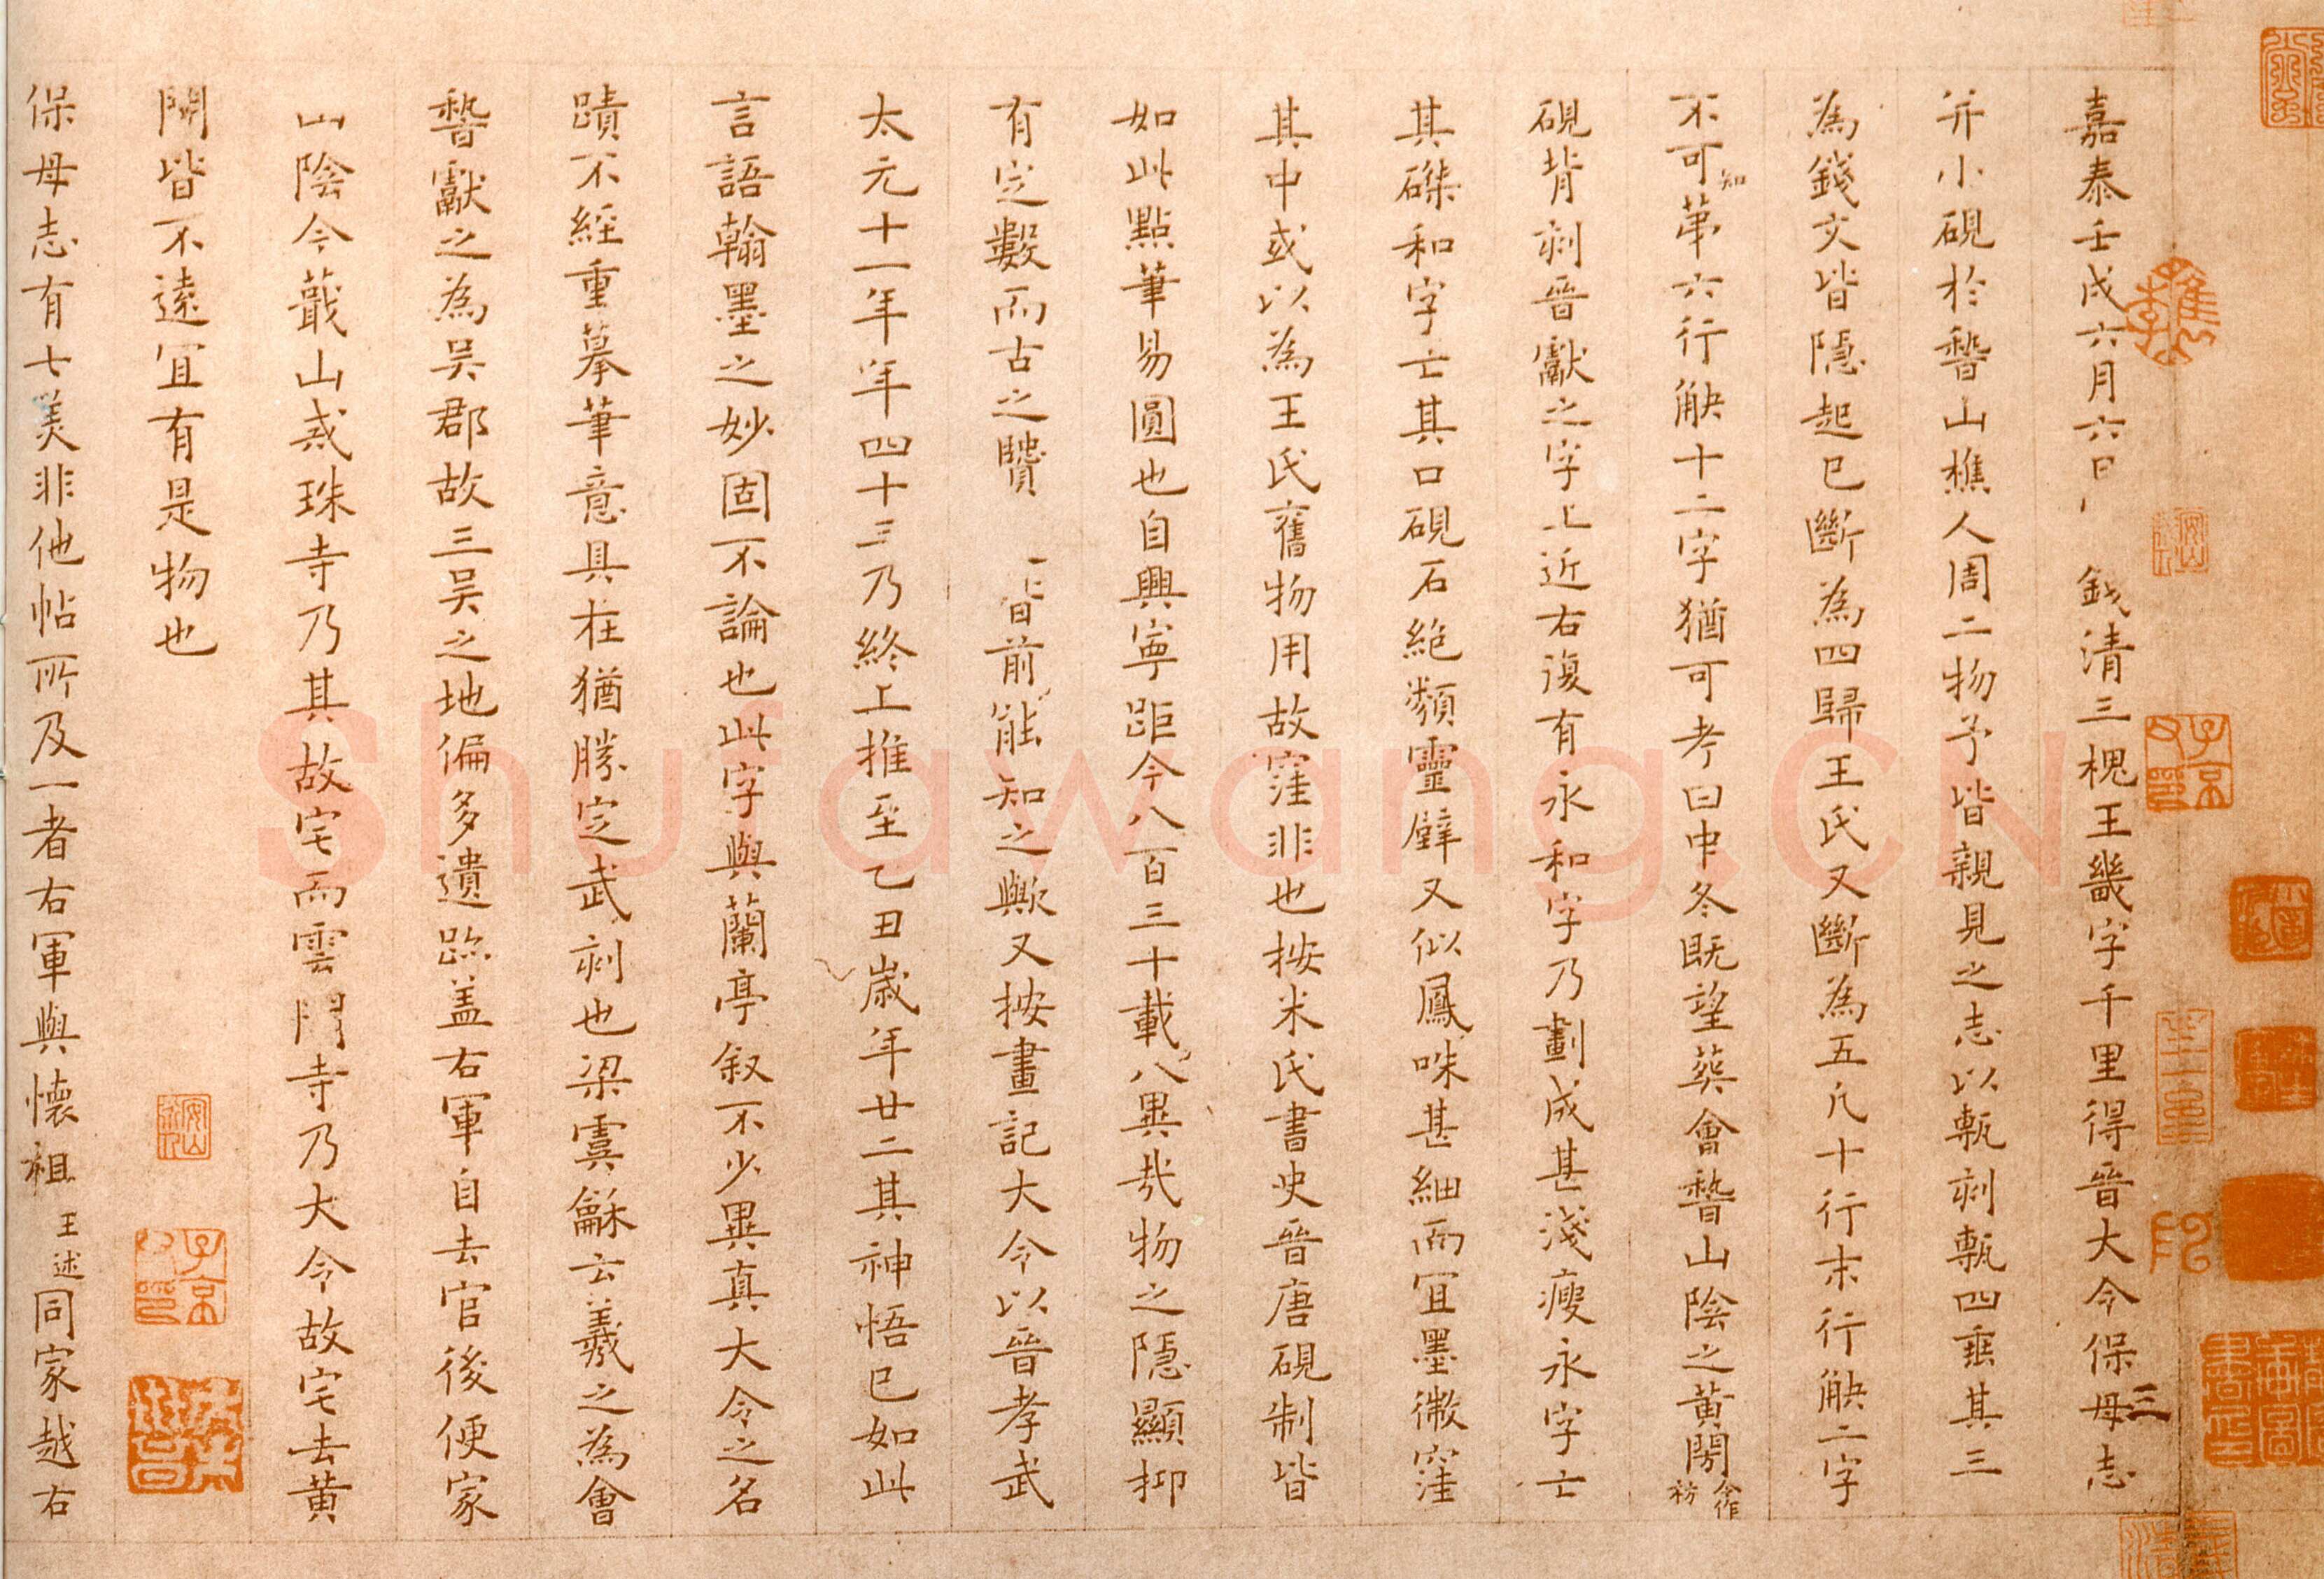 嘉泰壬戌六月六日 錢清三槐王畿字千里得晉大令保母志三
并小硯於稽山樵人周二物予皆親見之志以甎刻甎四垂其三
為錢文皆隱起已斷為四歸王氏又斷為五凡十行末行缺二字
不可知第六行缺十二字猶可考曰中冬既望葬會稽山陰之黃閍合作枋
硯背刻晉獻之字上近右復有永和字乃劃成甚淺瘦永字亡
其磔和字亡其口硯石絕類靈壁又似鳳咮甚細而宜墨微窪
其中或以為王氏舊物用故窪非也按米氏書史晉唐硯制皆
如此點筆易圓也自興寧距今八百三十載八異哉物之隱顯抑
有定數而古之賢 者前能知之歟又按畫記大令以晉孝武
太元十一年年四十三乃終上推至乙丑歲年廿二其神悟已如此
言語翰墨之妙固不論也此字與蘭亭敘不少異真大令之名
蹟不經重摹筆意具在猶勝定武刻也梁虞龢云羲之為會
稽獻之為吳郡故三吳之地偏多遺跡蓋右軍自去官後便家
山陰今蕺山戒珠寺乃其故宅而雲門寺乃大令故宅去黃
閍皆不遠宜有是物也
保母志有七美非他帖所及一者右軍與懷祖王述同家越右